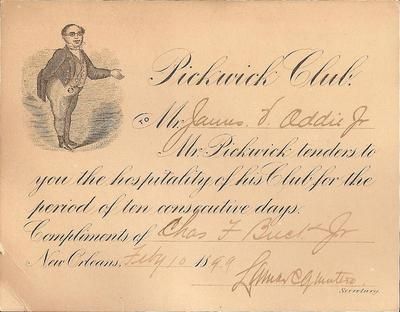 Pickwick Club.
TO Mr. James V. Addie Jr
Mr. Pickwick tenders to
you the hospitality of his Club for the
period of ten consecutive days.
Compliments of Chas F Buck Jr
New Orleans, Feby 10 1899
Lamar C
Secretary